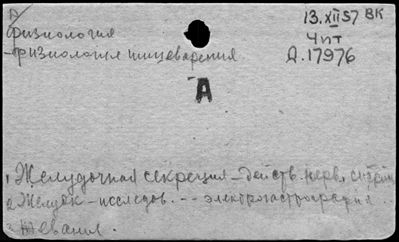 А
физиология
13.XII57 ВК
Чит
-физиология пищеварения
Д.17976
А
1 Желудочная секреция - действ. нерв. систем
2 Желудок - исследов. - - электрогастрография
3 Жевание.